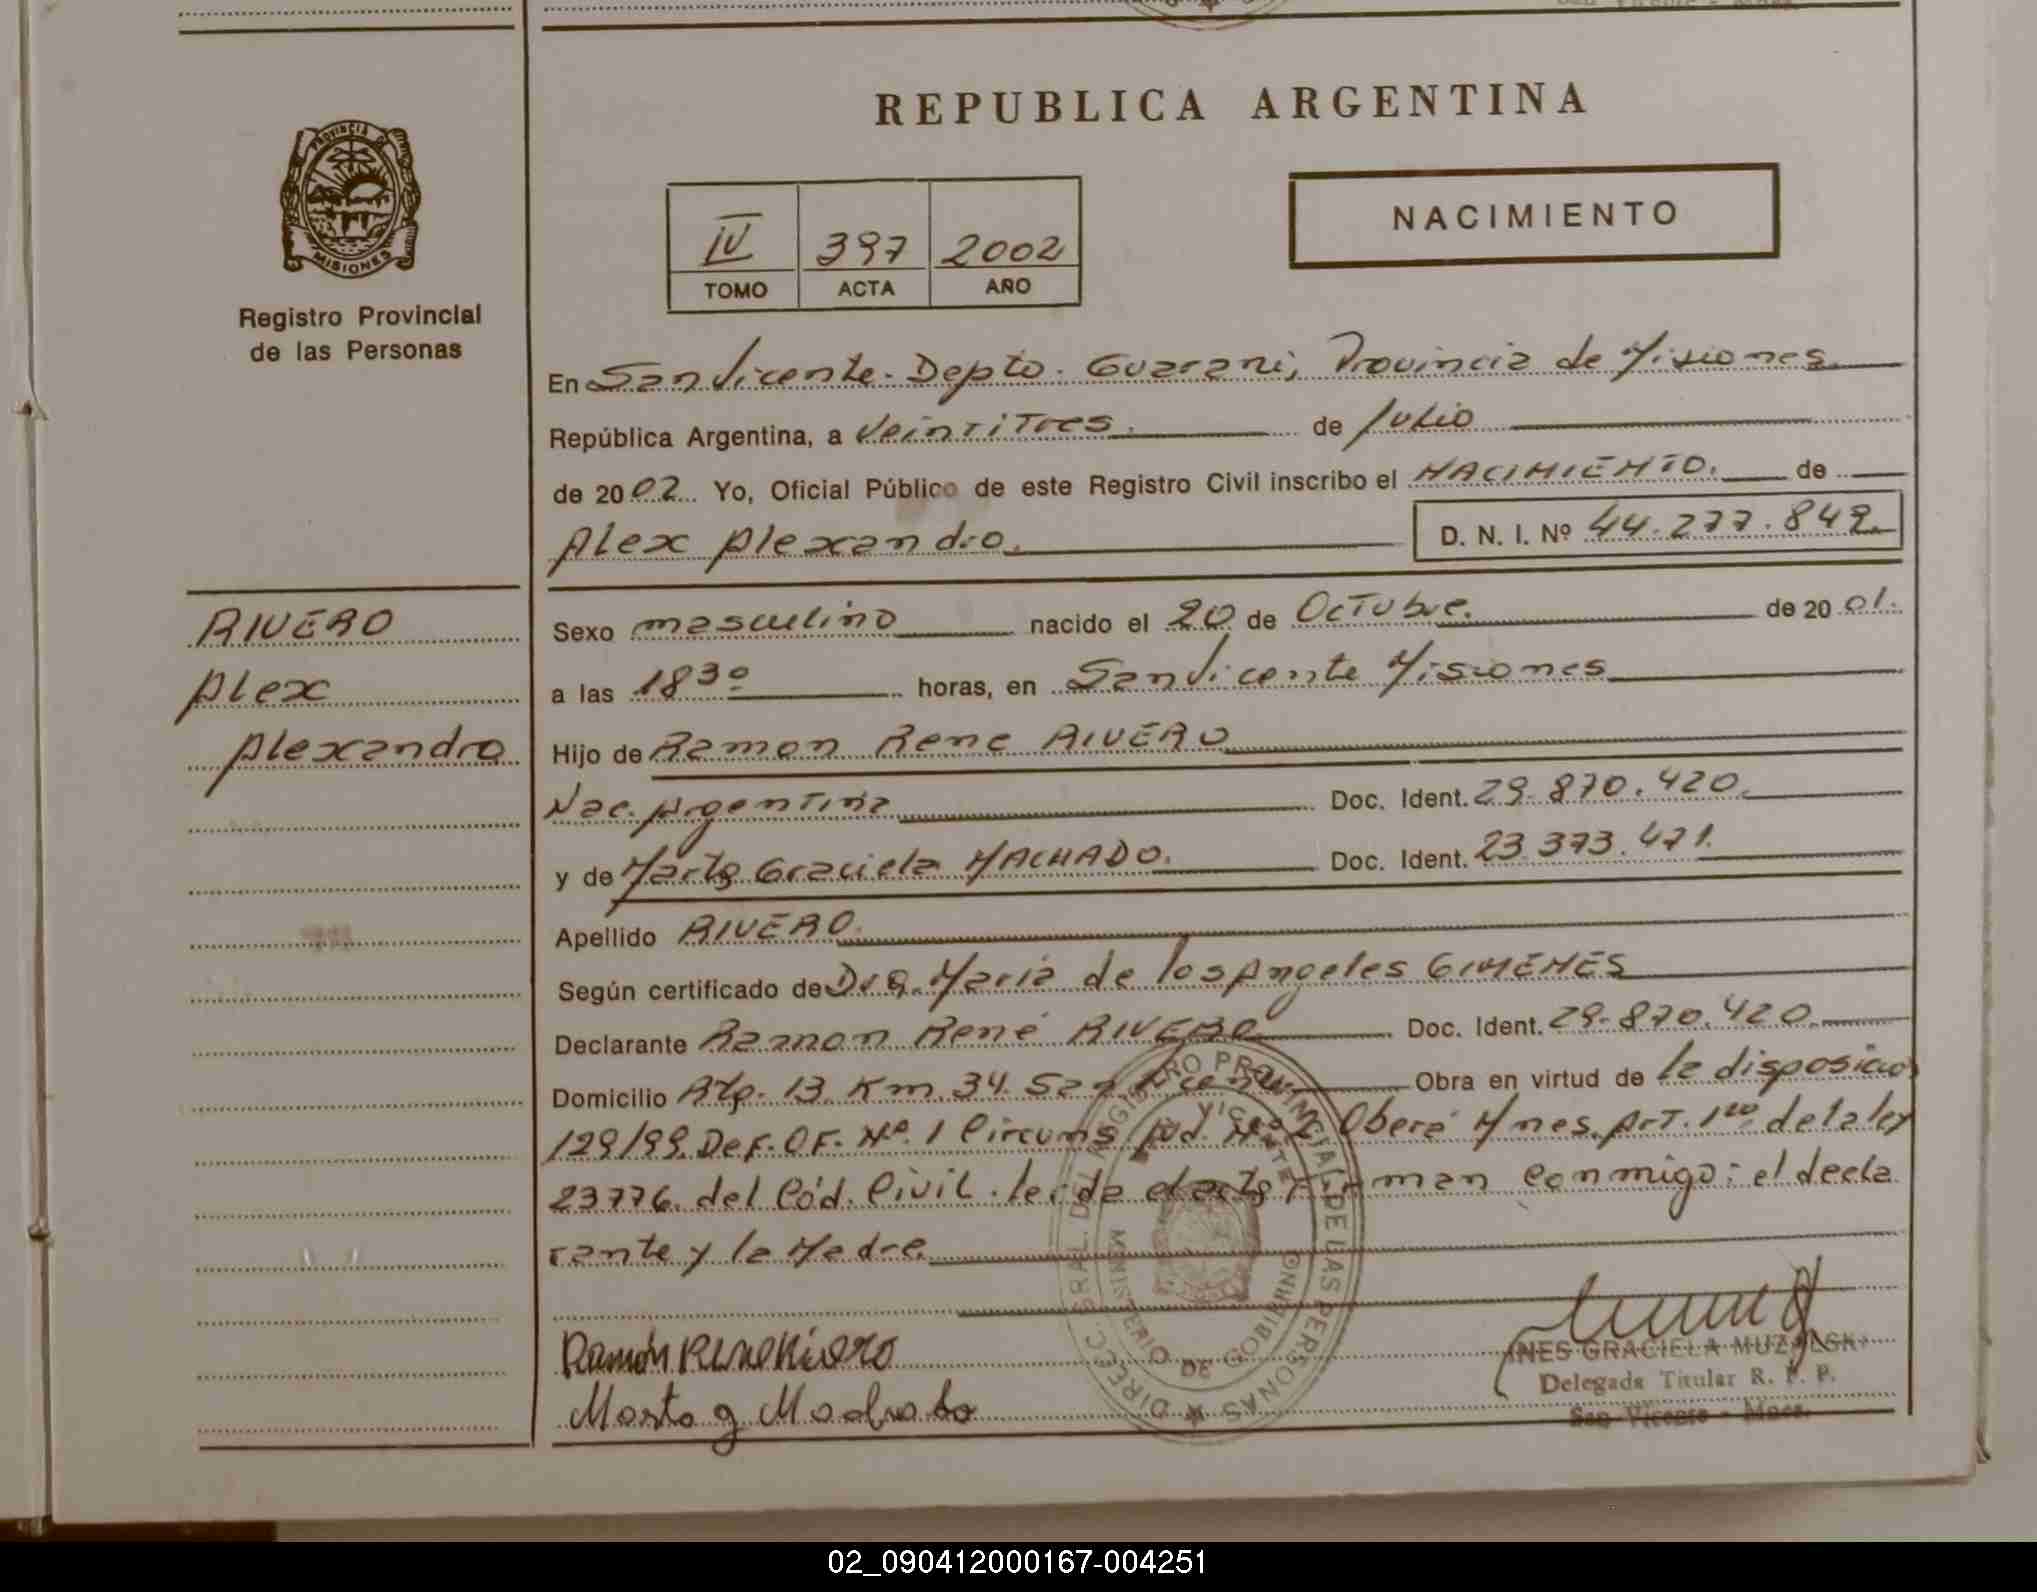 REPUBLICA ARGENTINA
PROVINCIA DE
MISIONES
Registro Provincial
de las Personas
IV 397 2002
TOMO ACTA AÑO
NACIMIENTO
En San Vicente. Depto. Guarani, Provincia de Misiones
República Argentina, a Veintitres. de Julio
de 2002 Yo, Oficial Público de este Registro Civil inscribo el NACIMIENTO. de
Alex Alexandro. D. N. I. Nº 44.277.842
RIVERO
Alex
Alexandro
Sexo masculino nacido el 20 de Octubre. de 2001.
a las 18³⁰ horas, en San Vicente Misiones
Hijo de Ramon Rene RIVERO
Nac. Argentina Doc. Ident. 29.870.420.
y de Marta Graciela MACHADO. Doc. Ident. 23.373.471.
Apellido RIVERO.
Según certificado de Dra. Maria de los Angeles GIMENES
Declarante Ramon René RIVERO Doc. Ident. 29.870.420.
Domicilio Rta. 13. Km. 34. San Vicente Obra en virtud de la disposicion
129/99. Def. Of. Nº. 1 Circuns. Jud. Nº 2 Oberá Mnes. Art. 1ro. de la ley
23776. del Cód. Civil. leida el acta firman conmigo: el decla
rante y la Madre.
DIRECC. GRAL. DEL REGISTRO PROVINCIAL DE LAS PERSONAS
MINISTERIO DE GOBIERNO
Ramón Rene Rivero
Marta g Machado
INES GRACIELA
Delegada Titular R. P. P.
San Vicente - Mnes.
02_090412000167-004251